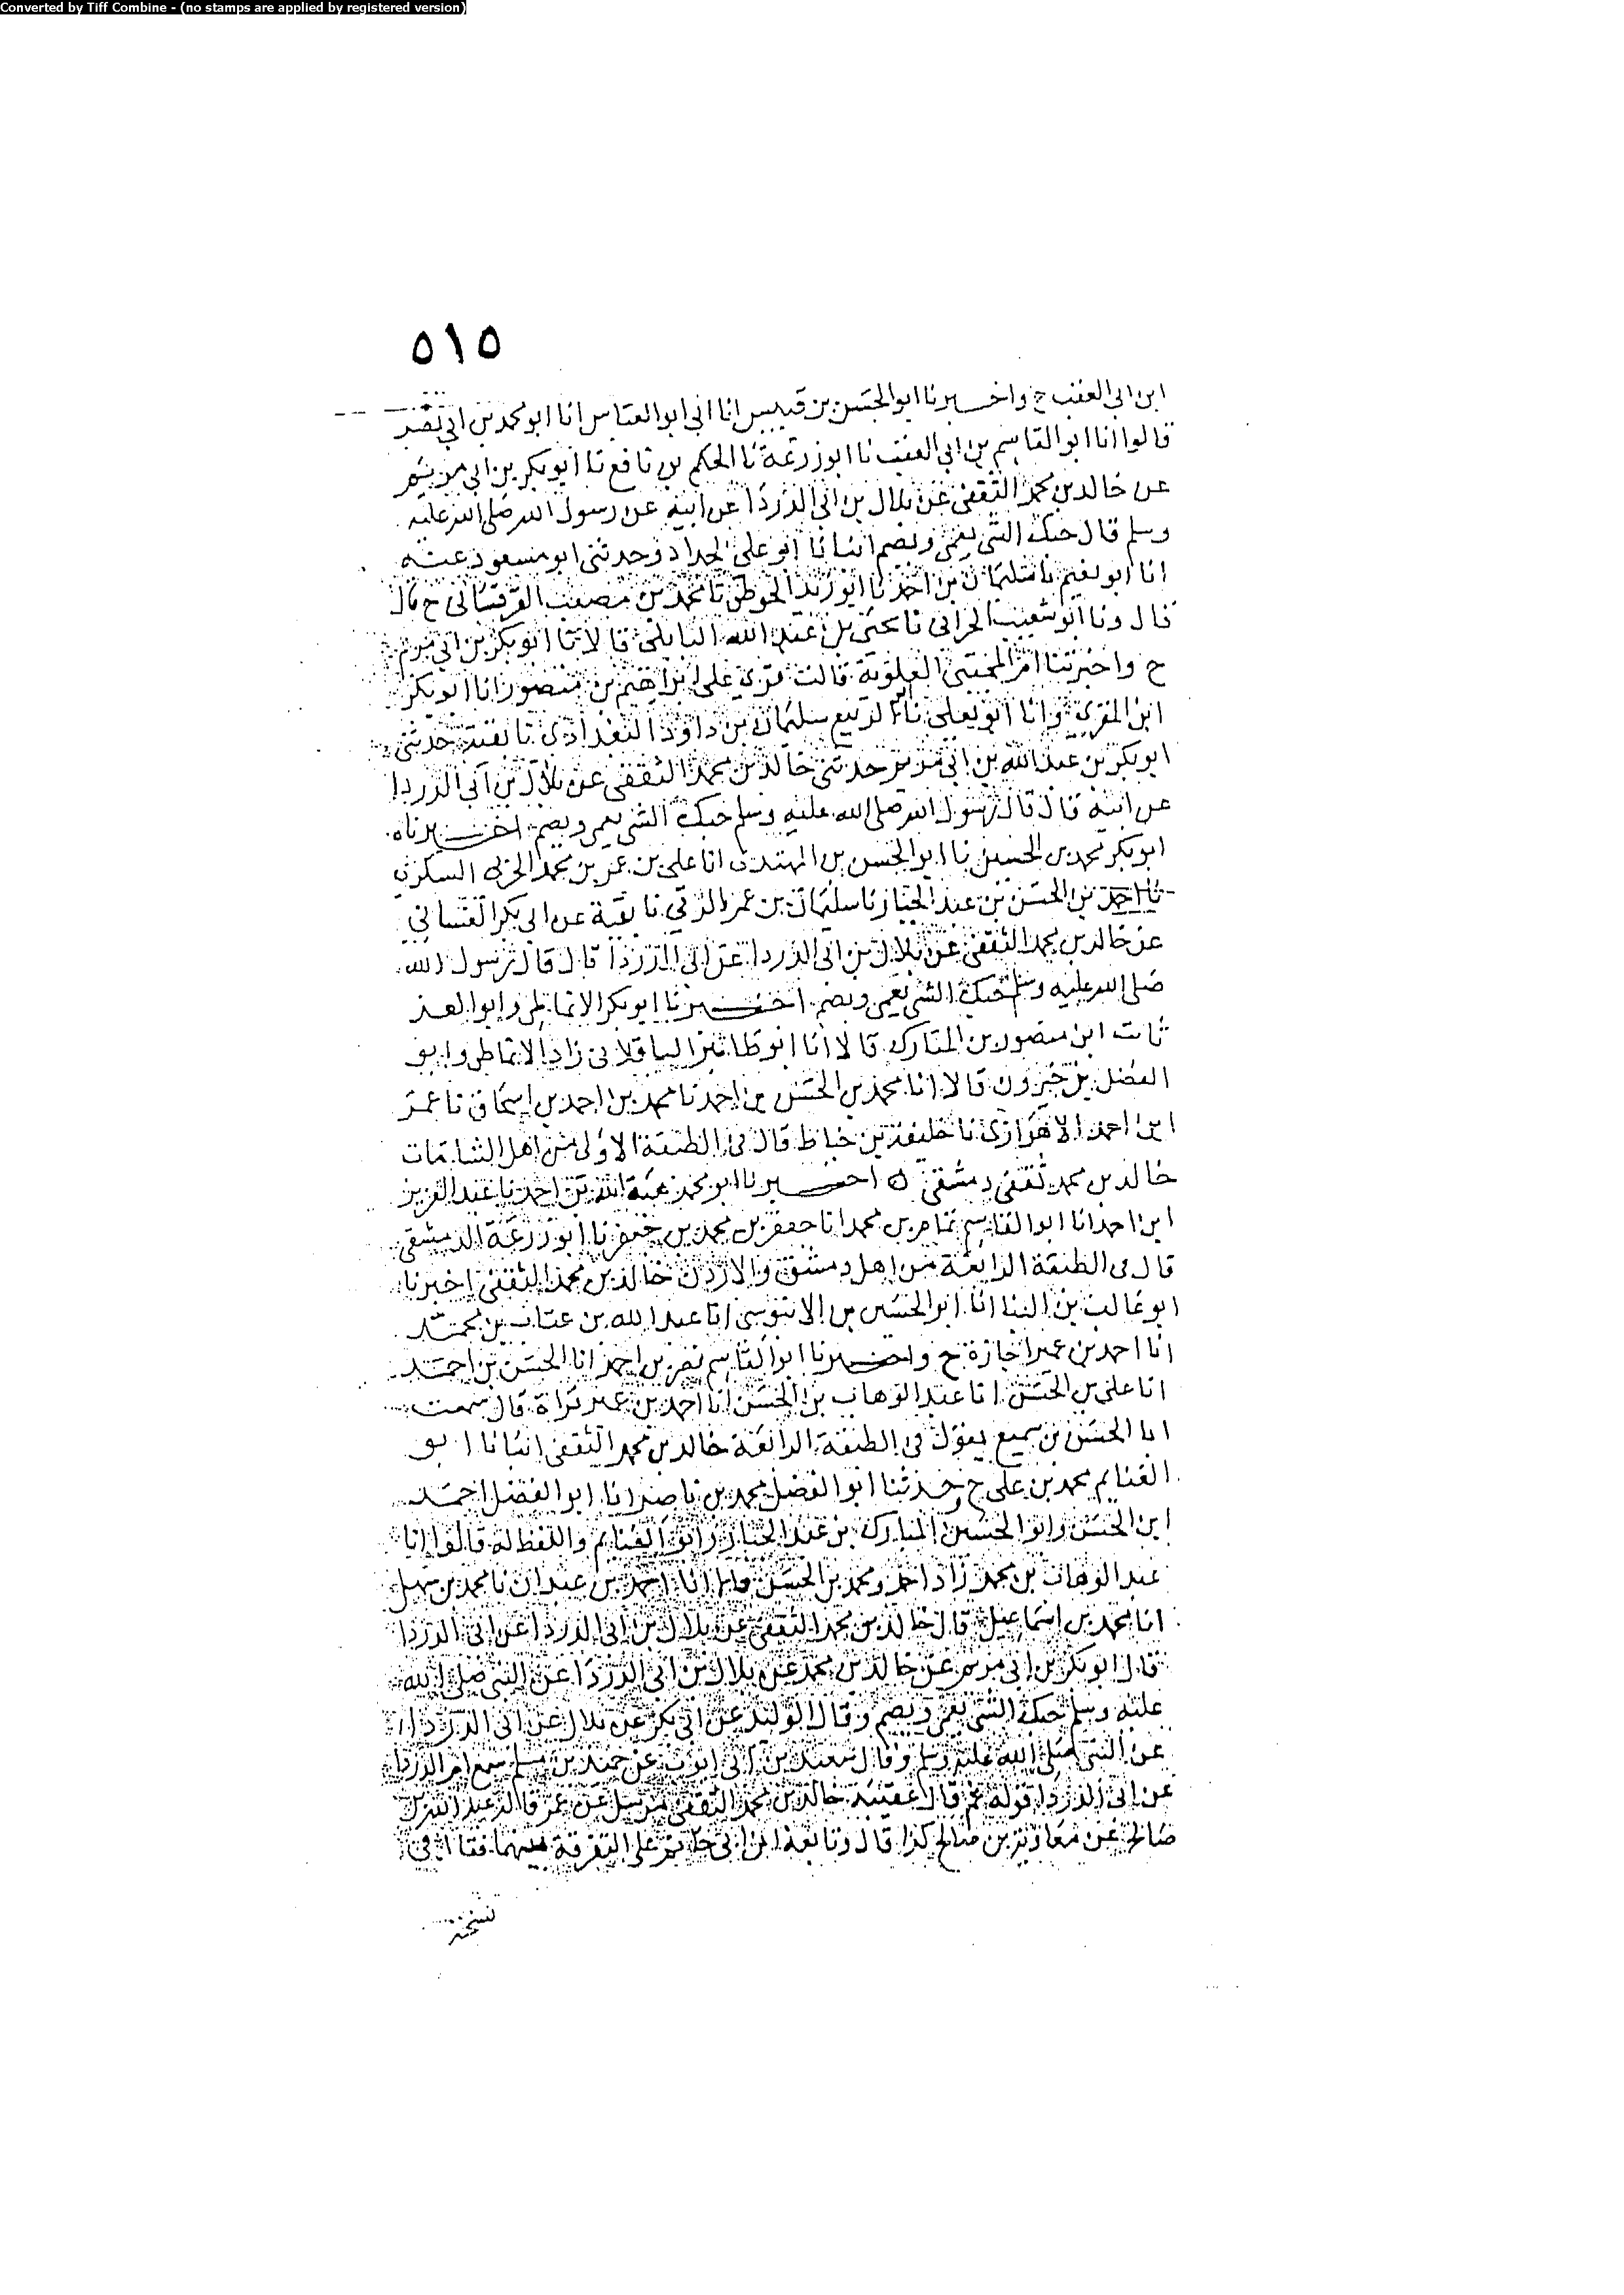 Converted by Tiff Combine - (no stamps are applied by registered version)
٥١٥
ابن ابى العقب ح واخـــبرنا ابو الحسن بن قبيس انا ابى ابو العباس انا ابو محمد بن ابى نصر
قالوا انا ابو القاسم بن ابى العقب نا ابو زرعة نا الحكم بن نافع نا ابو بكر بن ابى مريم
عن خالد بن محمد الثقفى عن بلال بن ابى الدردا عن ابيه عن رسول الله صلى الله عليه
وسلم قال حبك الشى يعمى ويصم انبانا ابو على الحداد وحدثنى ابو مسعود عنه
انا ابو نعيم نا سليمان بن احمد نا ابو زيد الحوطى نا محمد بن مصعب القرقسانى ح قال
قال ونا ابو شعيب الحرانى نا يحيى بن عبد الله البابلتى قالا نا ابو بكر بن ابى مريم
ح واخبرتنا ام المجتبى العلوية قالت قرى على ابراهيم بن منصور انا ابو بكر
ابن المقرى انا ابو يعلى نا الربيع سليمان بن داود البغدادى نا بقية حدثنى
ابو بكر بن عبد الله بن ابى مريم حدثنى خالد بن محمد الثقفى عن بلال بن ابى الدردا
عن ابيه قال قال رسول الله صلى الله عليه وسلم حبك الشى يعمى ويصم اخـــبرناه
ابو بكر محمد بن الحسين نا ابو الحسن بن المهتدى انا على بن عمر بن محمد الحربى السكرى
نا احمد بن الحسن بن عبد الجبار نا سليمان بن عمر الرقى نا بقية عن ابى بكر الغسانى
عن خالد بن محمد الثقفى عن بلال بن ابى الدردا عن ابى الدردا قال قال رسول الله
صلى الله عليه وسلم حبك الشى يعمى ويصم اخـــبرنا ابو بكر الانماطى وابو العز
ثابت ابن منصور بن المبارك قالا انا ابو طاهر الباقلانى زاد الانماطى وابو
الفضل بن خيرون قالا انا محمد بن الحسن بن احمد نا محمد بن احمد بن اسحاق نا عمر
ابن احمد الاهوازى نا خليفة بن خياط قال فى الطبقة الاولى من اهل الشامات
خالد بن محمد ثقفى دمشقى ٥ اخـــبرنا ابو محمد هبة الله بن احمد نا عبد العزيز
ابن احمد انا ابو القاسم تمام بن محمد انا جعفر بن محمد بن جعفر نا ابو زرعة الدمشقى
قال فى الطبقة الرابعة من اهل دمشق والاردن خالد بن محمد الثقفى اخبرنا
ابو غالب بن البنا انا ابو الحسين بن الابنوسى انا عبد الله بن عتاب بن محمد
انا احمد بن عمير اجازة ح واخـــبرنا ابو القاسم نصر بن احمد انا الحسن بن احمد
انا على بن الحسن انا عبد الوهاب بن الحسن انا احمد بن عمير قراة قال سمعت
ابا الحسن بن سميع يقول فى الطبقة الرابعة خالد بن محمد الثقفى انبانا ابو
الغنايم محمد بن على ح وحدثنا ابو الفضل محمد بن ناصر انا ابو الفضل احمد
ابن الحسن وابو الحسين المبارك بن عبد الجبار وابو الغنايم واللفظ له قالوا انا
عبد الوهاب بن محمد زاد احمد ومحمد بن الحسن قالا انا احمد بن عبدان نا محمد بن سهل
انا محمد بن اسماعيل قال خالد بن محمد الثقفى عن بلال بن ابى الدردا عن ابى الدردا
قال ابو بكر بن ابى مريم عن خالد بن محمد عن بلال بن ابى الدردا عن النبى صلى الله
عليه وسلم حبك الشى يعمى ويصم وقال الوليد عن ابى بكر عن بلال عن ابى الدردا
عن النبى صلى الله عليه وسلم وقال سعيد بن ابى ايوب عن حميد بن مسلم سمع ام الدردا
عن ابى الدردا قوله ثم قال عقيبه خالد بن محمد الثقفى مرسل عن عمر قاله عبد الله بن
صالح عن معاوية بن صالح كذا قال وتابعه ابن ابى حاتم على التفرقة بينهما فقال فى
نسخة